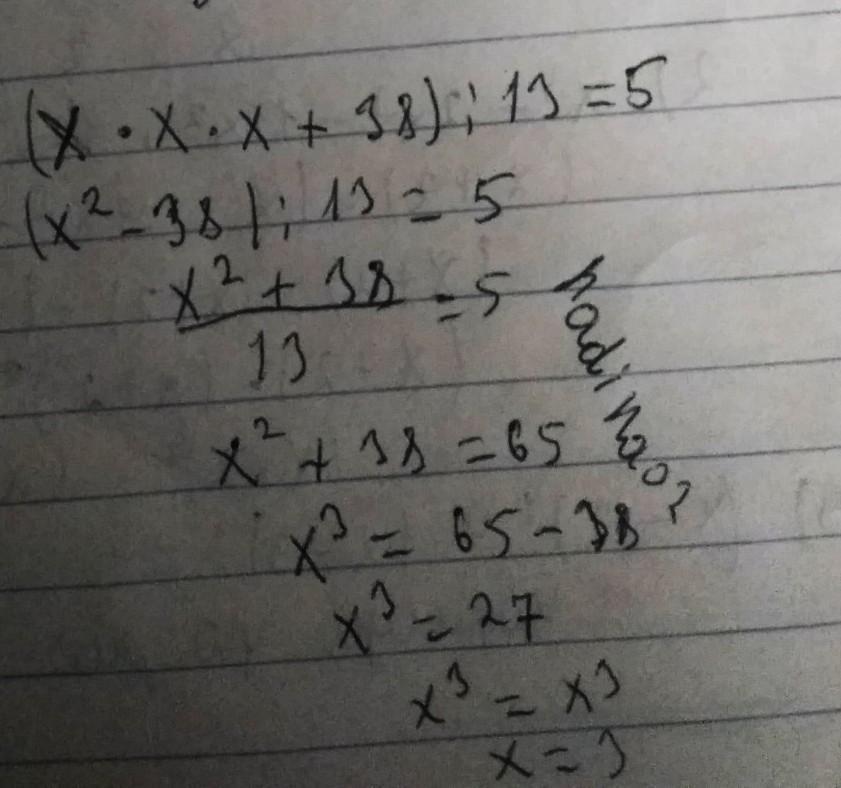 (x · x · x + 38) : 13 = 5
(x² - 38) : 13 = 5
x² + 38
13
= 5
x² + 38 = 65
x³ = 65 - 38
x³ = 27
x³ = x3
x = 3